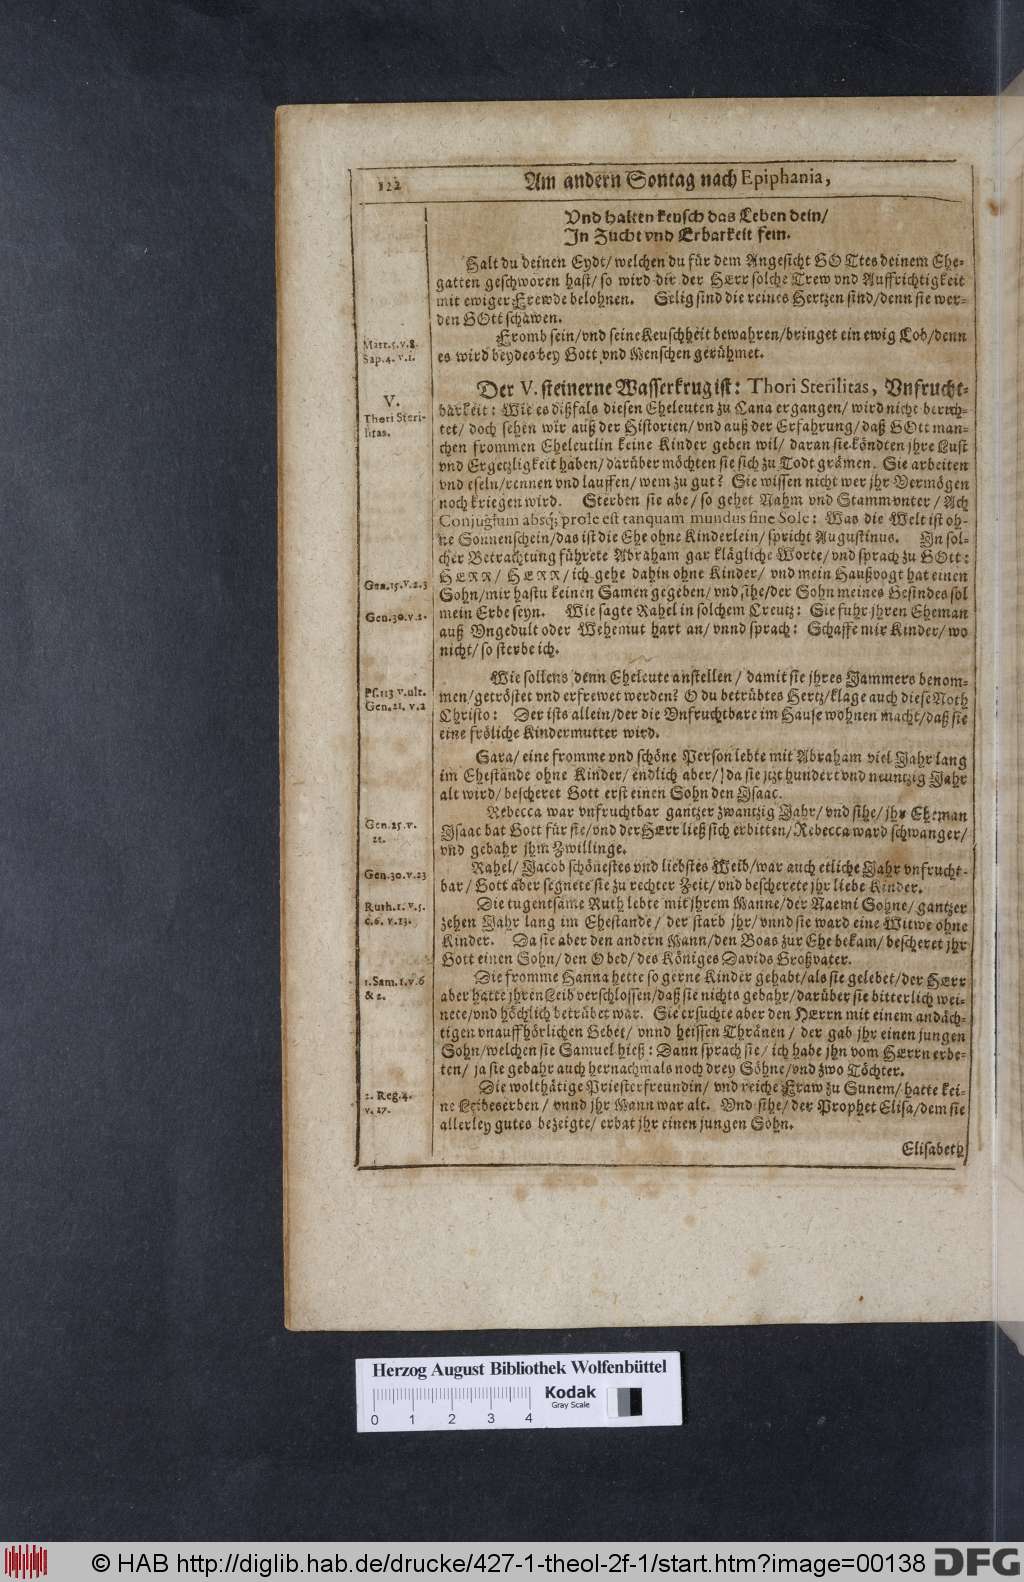 122
Am andern Sontag nach Epiphania,
Vnd halten keusch das Leben dein/
In Zucht vnd Erbarkeit fein.
Halt du deinen Eydt/ welchen du für dem Angesicht GOTtes deinem Ehe-
gatten geschworen hast/ so wird dir der HErr solche Trew vnd Auffrichtigkeit
mit ewiger Frewde belohnen. Selig sind die reines Hertzen sind/denn sie wer-
den GOtt schawen.
Matt.5.v.8.
Sap.4.v.1.
Fromb sein/vnd seine Keuschheit bewahren/bringet ein ewig Lob/denn
es wird beydes bey Gott vnd Menschen gerühmet.
V.
Thori Steri-
litas.
Der V. steinerne Wasserkrug ist: Thori Sterilitas, Vnfrucht-
barkeit: Wie es dißfals diesen Eheleuten zu Cana ergangen/ wird nicht berich-
tet/ doch sehen wir auß der Historien/ vnd auß der Erfahrung/ daß GOtt man-
chen frommen Eheleutlin keine Kinder geben wil/ daran sie köndten jhre Lust
vnd Ergetzligkeit haben/ darüber möchten sie sich zu Todt grämen. Sie arbeiten
vnd eseln/rennen vnd lauffen/ wem zu gut? Sie wissen nicht wer jhr Vermögen
noch kriegen wird. Sterben sie abe/ so gehet Nahm vnd Stamm vnter/ Ach
Conjugium absq; prole est tanquam mundus sine Sole: Was die Welt ist oh-
ne Sonnenschein/das ist die Ehe ohne Kinderlein/ spricht Augustinus. In sol-
cher Betrachtung führete Abraham gar klägliche Worte/ vnd sprach zu GOtt:
Gen.15.v.2.3
HERR/ HERR/ ich gehe dahin ohne Kinder/ vnd mein Haußvogt hat einen
Sohn/mir hastu keinen Samen gegeben/ vnd sihe/der Sohn meines Gesindes sol
Gen.30.v.1.
mein Erbe seyn. Wie sagte Rahel in solchem Creutz: Sie fuhr jhren Eheman
auß Vngedult oder Wehemut hart an/ vnnd sprach: Schaffe mir Kinder/ wo
nicht/ so sterbe ich.
Wie sollens denn Eheleute anstellen/ damit sie jhres Jammers benom-
Ps.113 v.ult.
Gen.21. v.2
men/getröstet vnd erfrewet werden? O du betrübtes Hertz/klage auch diese Noth
Christo: Der ists allein/der die Vnfruchtbare im Hause wohnen macht/daß sie
eine fröliche Kindermutter wird.
Sara/ eine fromme vnd schöne Person lebte mit Abraham viel Jahr lang
im Ehestande ohne Kinder/ endlich aber/ da sie jetzt hundert vnd neuntzig Jahr
alt wird/ bescheret Gott erst einen Sohn den Isaac.
Rebecca war vnfruchtbar gantzer zwantzig Jahr/ vnd sihe/ jhr Eheman
Gen.25.v.
21.
Isaac bat Gott für sie/vnd der HErr ließ sich erbitten/Rebecca ward schwanger/
vnd gebahr jhm Zwillinge.
Gen.30.v.23
Rahel/ Jacob schönestes vnd liebstes Weib/war auch etliche Jahr vnfrucht-
bar/ Gott aber segnete sie zu rechter Zeit/ vnd bescherete jhr liebe Kinder.
Ruth.1.v.5.
c.6. v.13.
Die tugentsame Ruth lebte mit jhrem Manne/der Naemi Sohne/ gantzer
zehen Jahr lang im Ehestande/ der starb jhr/ vnnd sie ward eine Witwe ohne
Kinder. Da sie aber den andern Mann/den Boas zur Ehe bekam/ bescheret jhr
Gott einen Sohn/den Obed/des Königes Davids Großvater.
1.Sam.1.v.6
& 2.
Die fromme Hanna hette so gerne Kinder gehabt/als sie gelebet/der HErr
aber hatte jhren Leib verschlossen/daß sie nichts gebahr/darüber sie bitterlich wei-
nete/vnd höchlich betrübet war. Sie ersuchte aber den HErrn mit einem andäch-
tigen vnauffhörlichen Gebet/ vnnd heissen Thränen/ der gab jhr einen jungen
Sohn/welchen sie Samuel hieß: Dann sprach sie/ ich habe jhn vom HErrn erbe-
ten/ ja sie gebahr auch hernachmals noch drey Söhne/vnd zwo Töchter.
2. Reg.4.
v.17.
Die wolthätige Priesterfreundin/ vnd reiche Fraw zu Sunem/ hatte kei-
ne Leibeserben/ vnnd jhr Mann war alt. Vnd sihe/ der Prophet Elisa/dem sie
allerley gutes bezeigte/ erbat jhr einen jungen Sohn.
Elisabeth
Herzog August Bibliothek Wolfenbüttel
Kodak
Gray Scale
0 1 2 3 4
© HAB http://diglib.hab.de/drucke/427-1-theol-2f-1/start.htm?image=00138
DFG